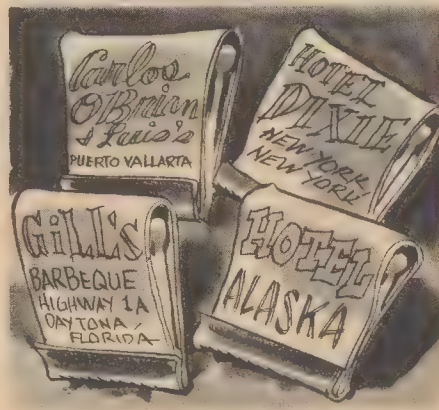 Carlos
O'Brian
& Luis's
PUERTO VALLARTA
HOTEL
DIXIE
NEW YORK,
NEW YORK
GILL'S
BARBEQUE
HIGHWAY 1A
DAYTONA,
FLORIDA
HOTEL
ALASKA